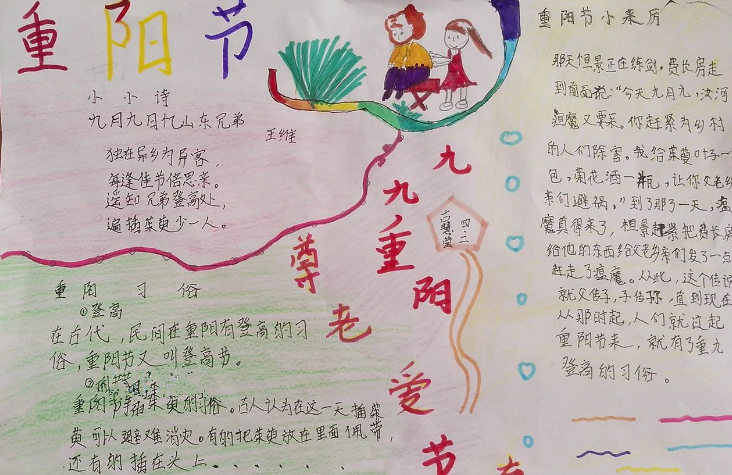 重阳节
小小诗
九月九日忆山东兄弟
王维
独在异乡为异客，
每逢佳节倍思亲。
遥知兄弟登高处，
遍插茱萸少一人。
重阳习俗
①登高
在古代，民间在重阳有登高的习
俗，重阳节又叫登高节。
②
重阳节插茱萸的习俗。古人认为在这一天插茱
萸可以避难消灾。有的把茱萸放在里面佩带，
还有的插在头上......
九九重阳
尊老爱
节
四·二
重阳节小来历
那天恒景正在练剑。费长房走
到前面说：“今天九月九，汝河
瘟魔又要来。你赶紧为乡村
的人们除害。我给茱萸叶子一
包，菊花酒一瓶，让你父老乡
亲们避祸。”到了那了一天，瘟
魔真得来了，恒景赶紧把费长房
给他的东西给父老乡亲们发了一点
赶走了瘟魔。从此，这个传说
就父传子，子传孙，直到现在
从那时起，人们就过起
重阳节来，就有了重九
登高的习俗。